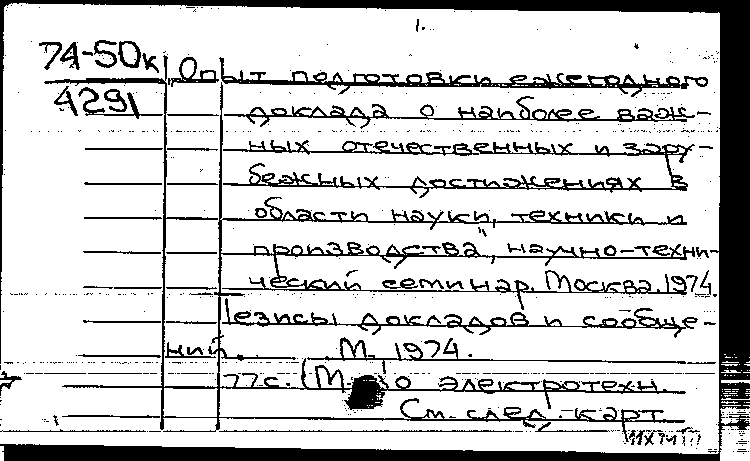 1.
74-50к
4291
Опыт подготовки ежегодного
доклада о наиболее важ-
ных отечественных и зару-
бежных достижениях в
области науки, техники и
производства", научно-техни-
ческий семинар. Москва. 1974.
Тезисы докладов и сообще-
ний. М. 1974.
77 с. (М-во электротехн.
См. след. карт.